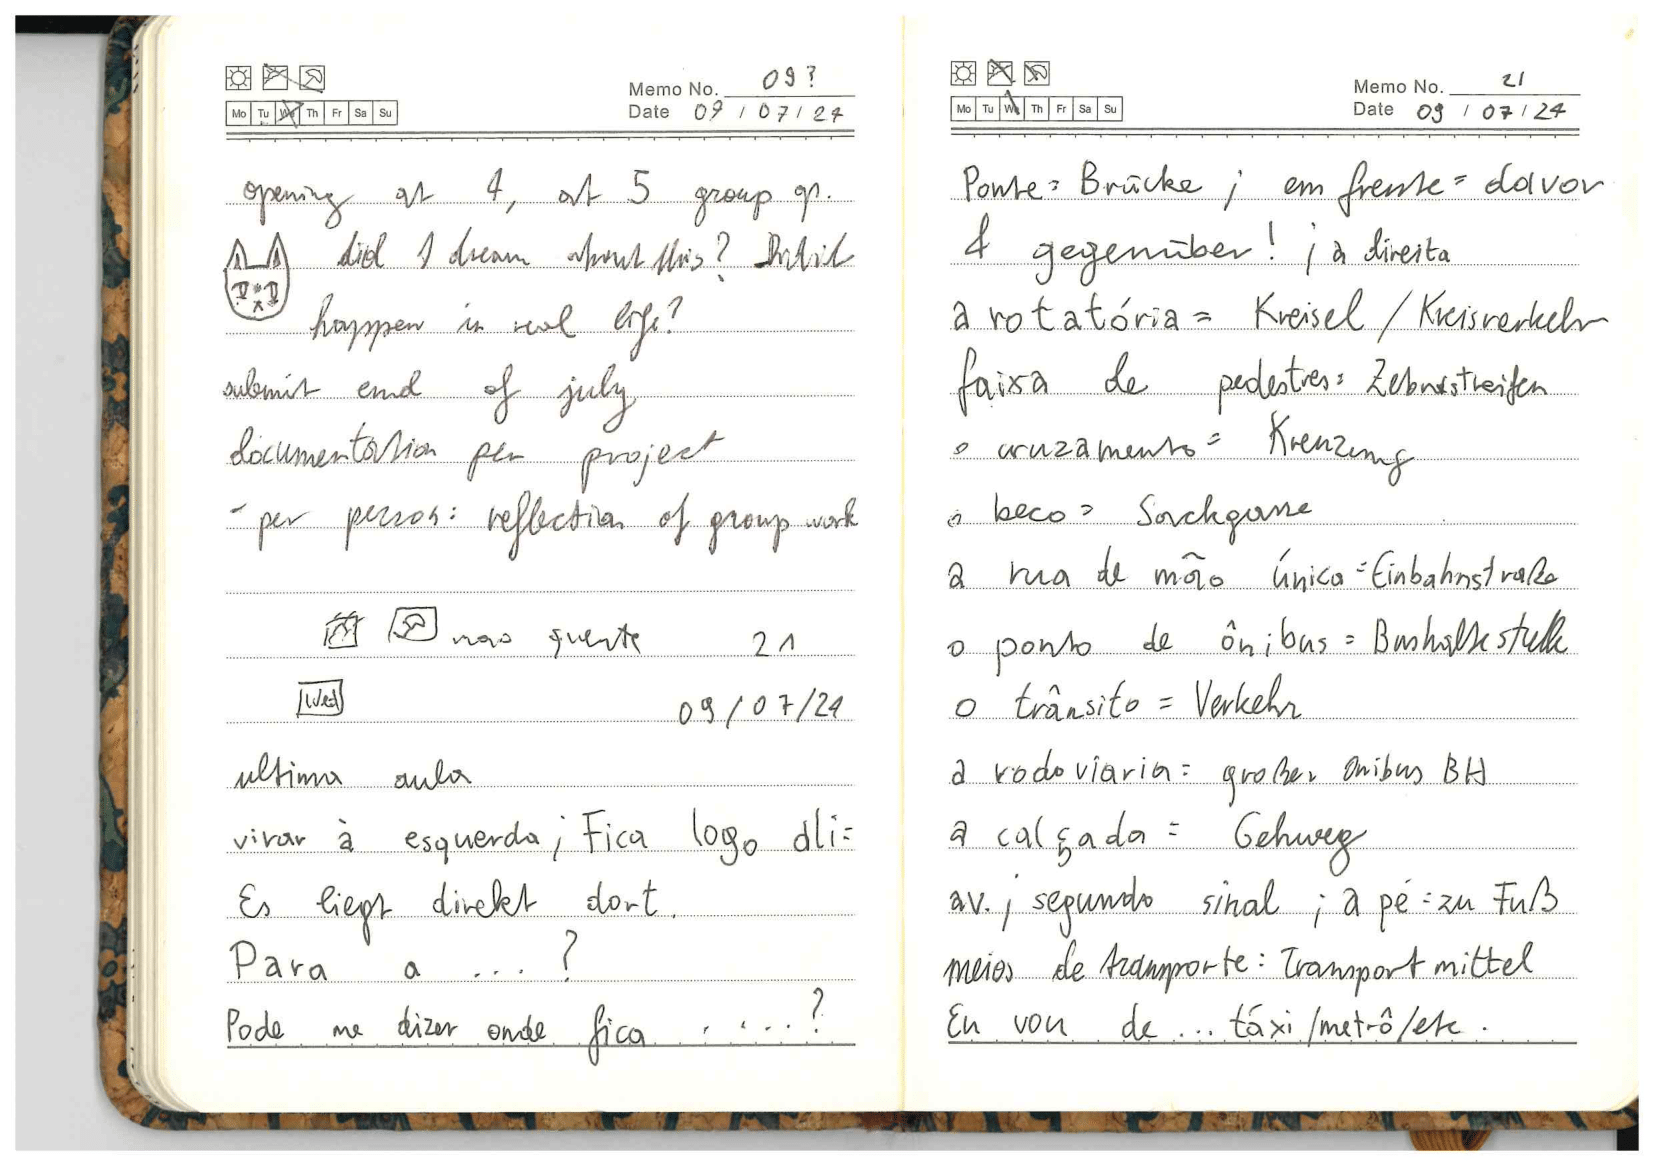 Memo No. 09?
Mo Tu We Th Fr Sa Su
Date 09 / 07 / 24
opening at 4, at 5 group gr.
did I dream about this? Did it
happen in real life?
submit end of july
documentation per project
- per person: reflection of group work
nao quente 21
Wed
09/07/24
ultima aula
virar à esquerda ; Fica logo ali =
Es liegt direkt dort.
Para a ... ?
Pode me dizer onde fica .....?
Memo No. 21
Mo Tu We Th Fr Sa Su
Date 09 / 07 / 24
Ponte = Brücke ; em frente = davor
& gegenüber! ; à direita
a rotatória = Kreisel / Kreisverkehr
faixa de pedestres = Zebrastreifen
o cruzamento = Kreuzung
o beco = Sackgasse
a rua de mão única = Einbahnstraße
o ponto de ônibus = Bushaltestelle
o trânsito = Verkehr
a rodoviaria = großer Onibus BH
a calçada = Gehweg
av. ; segundo sinal ; a pé = zu Fuß
meios de transporte : Transportmittel
Eu vou de ... táxi /metrô/etc.